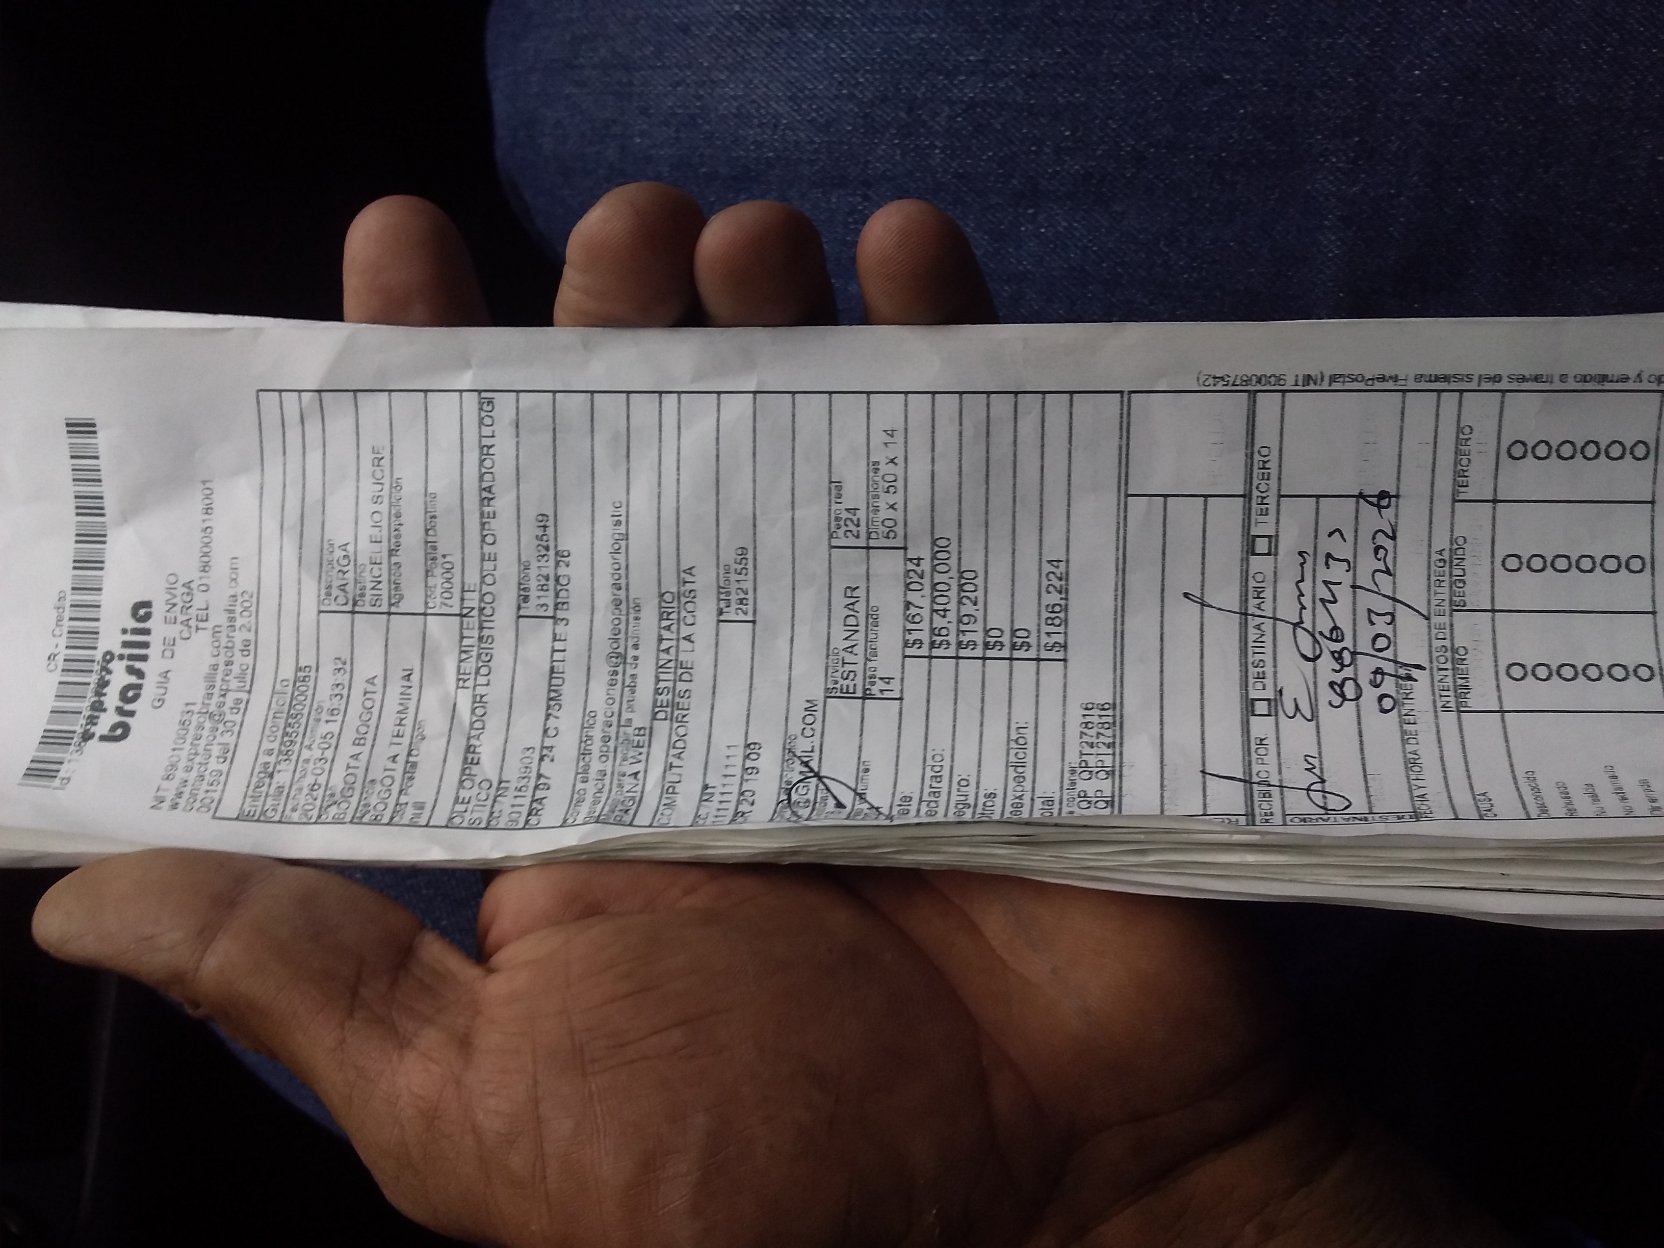 CR - Credito
expreso
brasilia
GUIA DE ENVIO
NIT 890100531 CARGA
www.expresobrasilia.com TEL. 018000518001
contactanos@expresobrasilia.com
00159 del 30 de julio de 2.002
Entrega a domicilio
Guia: 13895580006
2026-03-05 16:33:32
Descripción
CARGA
BOGOTA BOGOTA
Destino
SINCELEJO SUCRE
Agencia
BOGOTA TERMINAL
Agencia Reexpedición
Cod. Postal Origen
null
Cod. Postal Destino
700001
REMITENTE
OLE OPERADOR LOGISTICO OLE OPERADOR LOGI
STICO
CC / NIT
901153903
Teléfono
3182132549
CRA 97 24 C 75MUELLE 3 BDG 26
Correo electrónico
gerencia.operaciones@oleoperadorlogistic
PAGINA WEB
DESTINATARIO
COMPUTADORES DE LA COSTA
1111111111
Teléfono
2821559
R 20 19 09
@GMAIL.COM
Servicio
ESTANDAR
Peso real
224
Peso facturado
14
Dimensiones
50 x 50 x 14
ete: $167,024
eclarado: $6,400,000
eguro: $19,200
tros: $0
eexpedición: $0
otal: $186,224
QP QPT27816
QP QPT27816
RECIBIDO POR DESTINATARIO TERCERO
DESTINATARIO
09/03/2026
FECHA Y HORA DE ENTRE
INTENTOS DE ENTREGA
CAUSA PRIMERO SEGUNDO TERCERO
Desconocido
Rehusado
No reside
No reclamado
do y emitido a traves del sistema FivePostal (NIT 900087542)